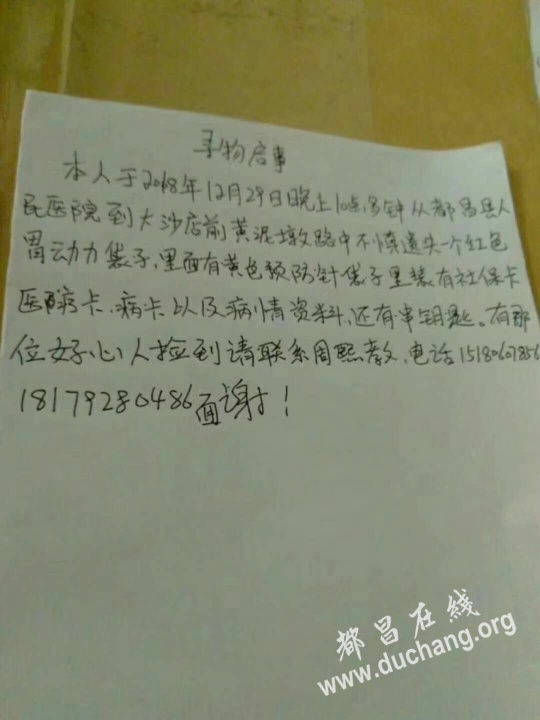 寻物启事
本人于2018年12月29日晚上10点多钟从都昌县人
民医院到大沙店前黄泥墩路中不慎遗失一个红色
胃动力袋子,里面有黄色预防针袋子里装有社保卡
医疗卡、病卡以及病情资料,还有串钥匙。有那
位好心人捡到请联系周熙教,电话15180607856
18179280486面谢!
都昌在线
www.duchang.org